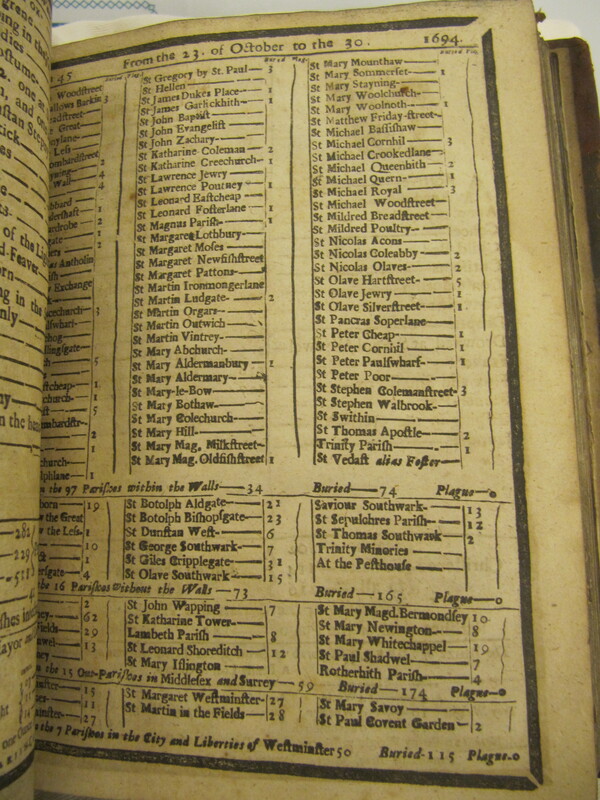 45
From the 23. of October to the 30. 1694.
Woodſtreet
allows Barkin 3
adſtreet
Great
nylane
Leſs
ombardſtreet 2
4
Wall 4
1
ardrobe 2
gate 1
2
Antholin
Exchange
3
5
ſtcheap 1
church 1
5
2
1
church
1
Buried Plag.
St Gregory by St. Paul 3
St Hellen
St James Dukes Place 1
St James Garlickhith 1
St John Baptiſt
St John Evangeliſt
St John Zachary
St Katharine Coleman 2
St Katharine Creechurch 1
St Lawrence Jewry
St Lawrence Poutney 1
St Leonard Eaſtcheap
St Leonard Foſterlane 1
St Magnus Pariſh 1
St Margaret Lothbury
St Margaret Moſes
St Margaret Newfiſhſtreet
St Margaret Pattons
St Martin Ironmongerlane
St Martin Ludgate 2
St Martin Orgars
St Martin Outwich
St Martin Vintrey
St Mary Abchurch
St Mary Aldermanbury 1
St Mary Aldermary
St Mary-le-Bow
St Mary Bothaw
St Mary Colechurch
St Mary Hill
St Mary Mag. Milkſtreet
St Mary Mag. Oldfiſhſtreet 1
St Mary Mounthaw
St Mary Sommerſet 1
St Mary Stayning
St Mary Woolchurch
St Mary Woolnoth 1
St Matthew Friday-ſtreet
St Michael Baſſiſhaw
St Michael Cornhil 3
St Michael Crookedlane
St Michael Queenhith 2
St Michael Quern 1
St Michael Royal 3
St Michael Woodſtreet
St Mildred Breadſtreet
St Mildred Poultry
St Nicolas Acons
St Nicolas Coleabby 2
St Nicolas Olaves 2
St Olave Hartſtreet 5
St Olave Jewry 1
St Olave Silverſtreet 1
St Pancras Soperlane
St Peter Cheap 1
St Peter Cornhil 1
St Peter Paulſwharf 1
St Peter Poor
St Stephen Colemanſtreet 3
St Stephen Walbrook
St Swithin
St Thomas Apoſtle 2
Trinity Pariſh 1
St Vedaſt alias Foſter
the 97 Pariſhes within the Walls—34 Buried—74 Plague—0
19
the Great
the Leſs 1
10
1
4
St Botolph Aldgate 21
St Botolph Biſhopſgate 23
St Dunſtan Weſt 6
St George Southwark 7
St Giles Cripplegate 31
St Olave Southwark 15
Saviour Southwark 13
St Sepulchres Pariſh 12
St Thomas Southwark 2
Trinity Minories
At the Peſthouſe
the 16 Pariſhes without the Walls—73 Buried—165 Plague—0
2
62
Fields 29
13
St John Wapping 7
St Katharine Tower
Lambeth Pariſh 8
St Leonard Shoreditch 12
St Mary Iſlington
St Mary Magd. Bermondſey 10
St Mary Newington 8
St Mary Whitechappel 19
St Paul Shadwel 7
Rotherhith Pariſh 4
the 15 Out-Pariſhes in Middleſex and Surrey—59 Buried—174 Plague—0
15
11
27
St Margaret Weſtminſter 27
St Martin in the Fields 28
St Mary Savoy
St Paul Covent Garden 2
the 7 Pariſhes in the City and Liberties of Weſtminſter 50 Buried-115 Plague-0